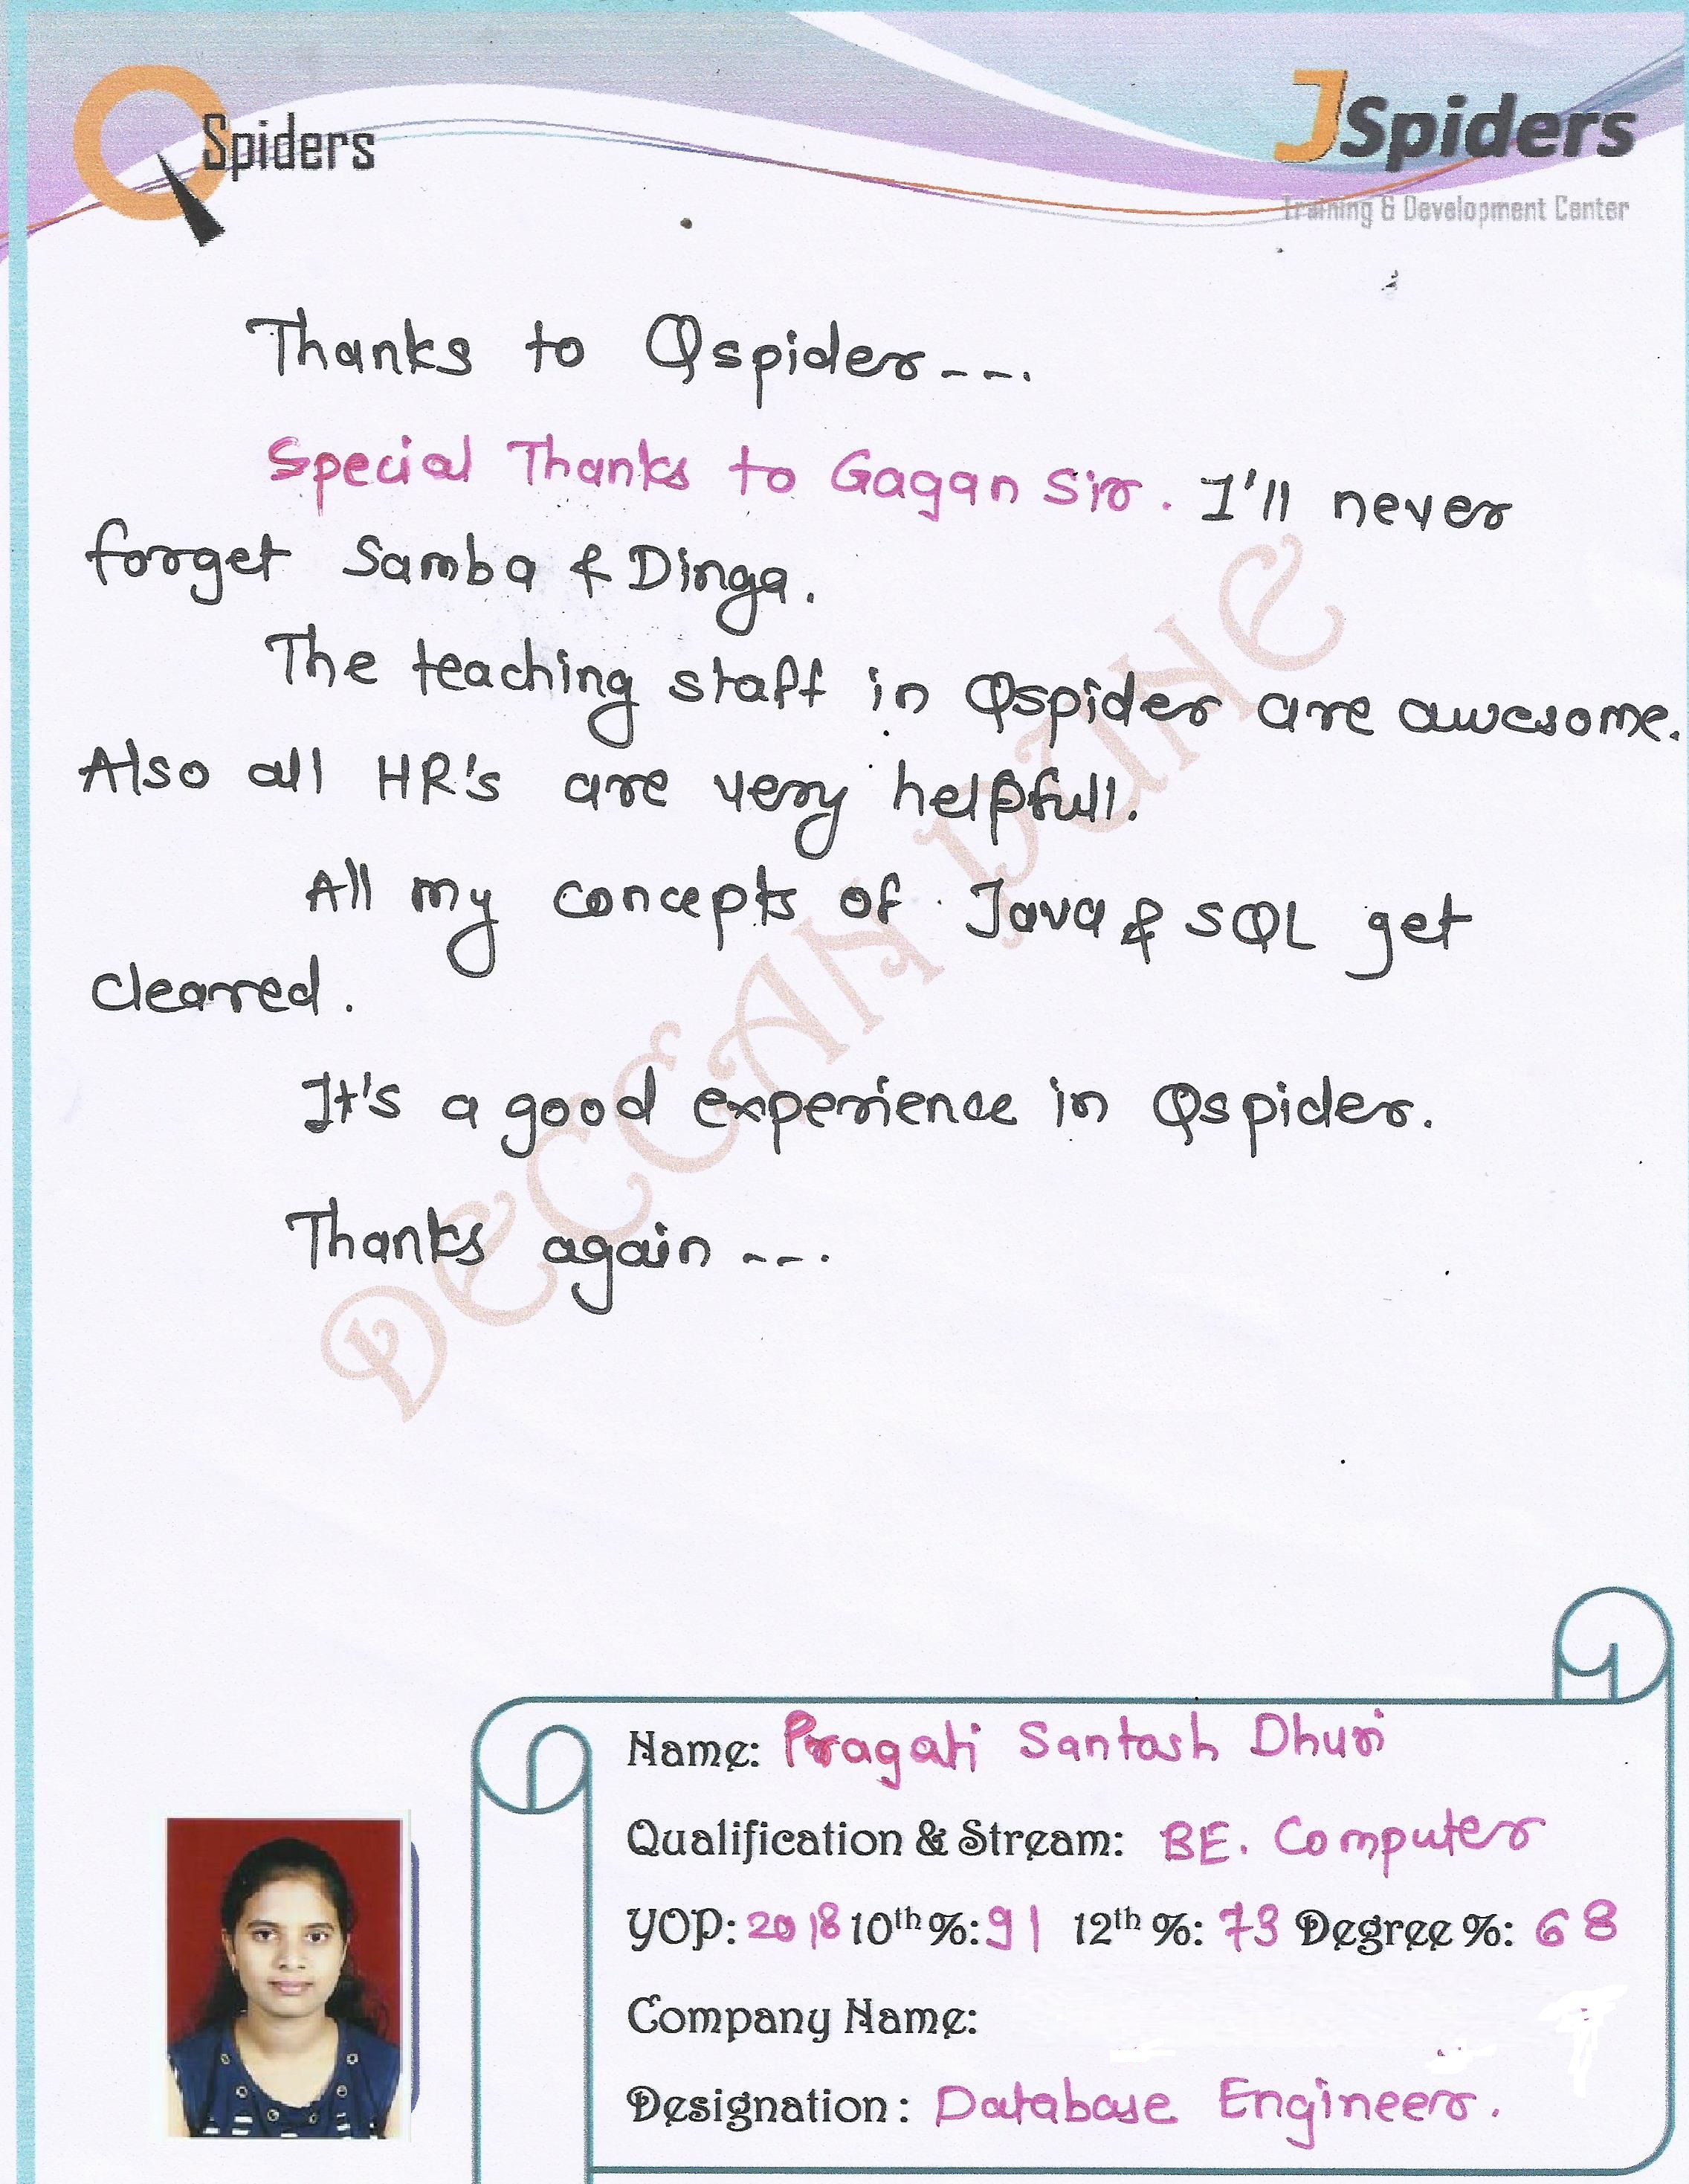 QSpiders
JSpiders
Training & Development Center
Thanks to Qspider---.
Special Thanks to Gagan Sir. I'll never
forget Samba & Dinga.
The teaching staff in Qspider are awesome.
Also all HR's are very helpfull.
All my concepts of Java & SQL get
cleared.
It's a good experience in Qspider.
Thanks again ---.
DECCAN PUNE
Name: Pragati Santosh Dhuri
Qualification & Stream: BE. Computer
YOP: 2018 10th %: 91 12th %: 73 Degree %: 68
Company Name:
Designation: Database Engineer.